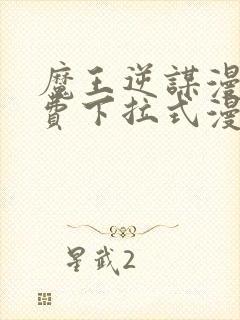 魔王逆謀漫
費下拉式漫
星武2